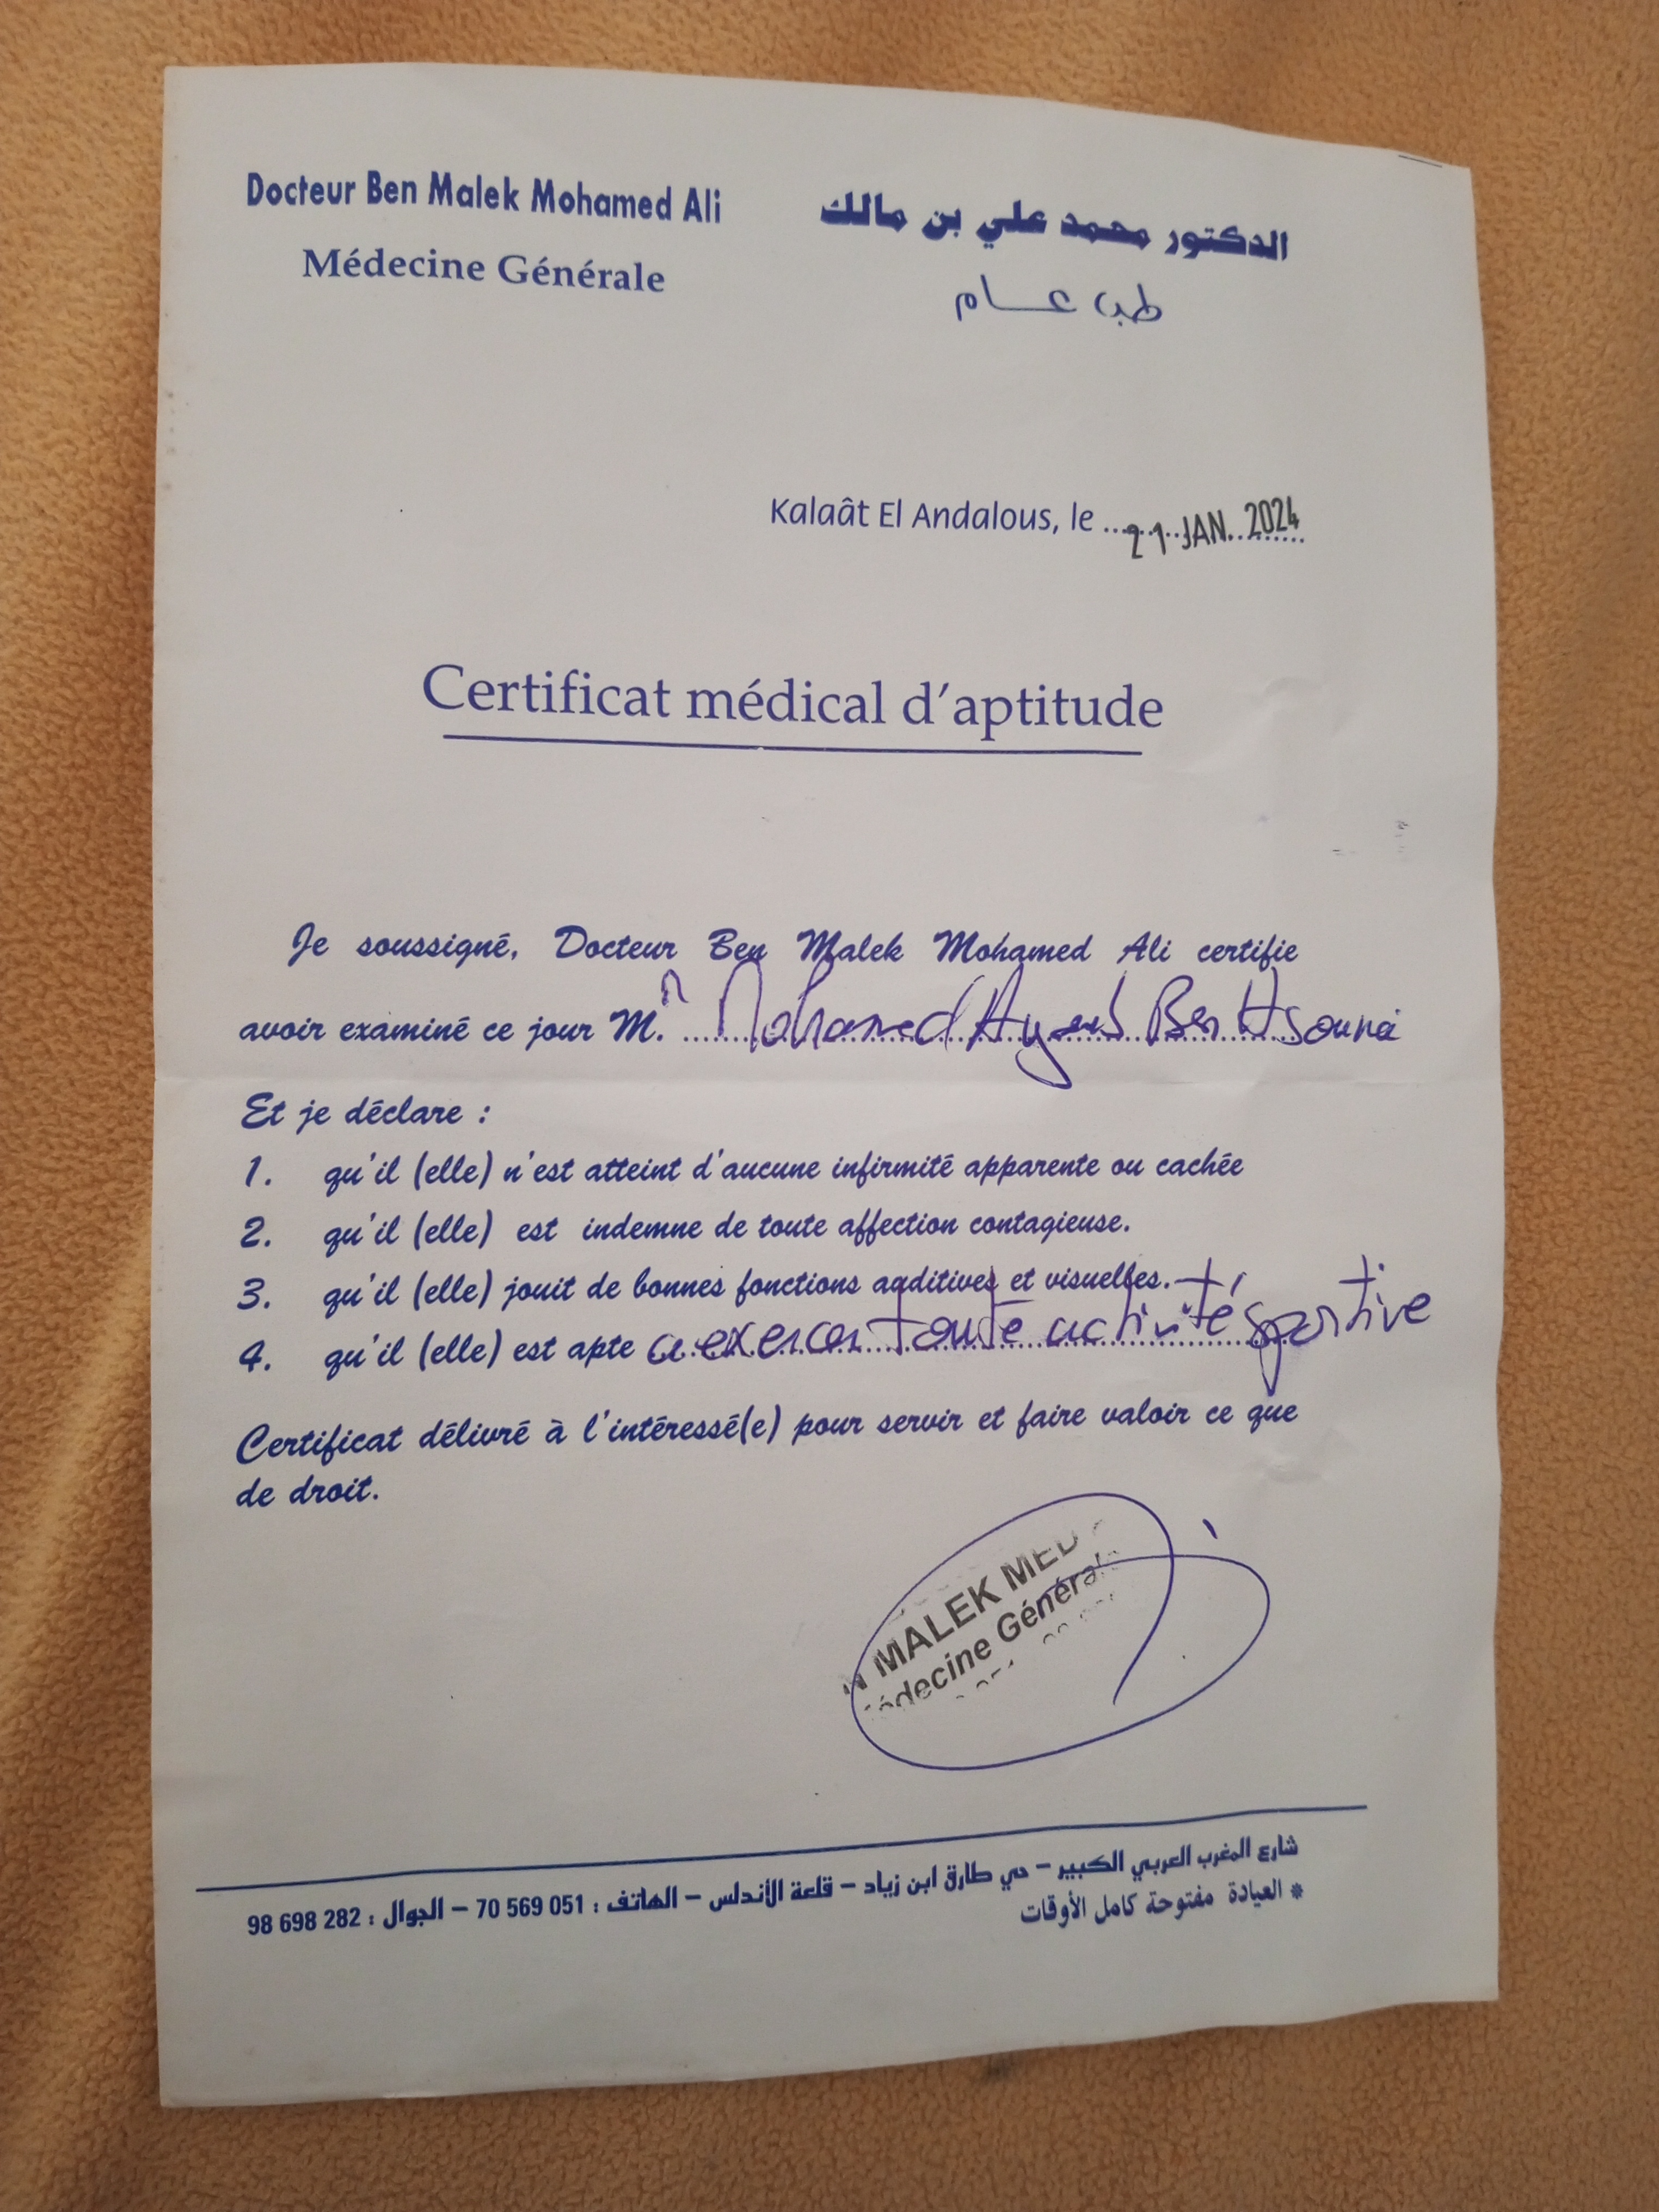 Docteur Ben Malek Mohamed Ali
Médecine Générale
الدكتور محمد علي بن مالك
طب عــام
Kalaât El Andalous, le ... 21 JAN. 2024
Certificat médical d'aptitude
Je soussigné, Docteur Ben Malek Mohamed Ali certifie
avoir examiné ce jour M. r Mohamed Ben Hsouna
Et je déclare :
1. qu'il (elle) n'est atteint d'aucune infirmité apparente ou cachée
2. qu'il (elle) est indemne de toute affection contagieuse.
3. qu'il (elle) jouit de bonnes fonctions auditives et visuelles.
4. qu'il (elle) est apte a exercer toute activité sportive
Certificat délivré à l'intéressé(e) pour servir et faire valoir ce que
de droit.
MALEK MED
Médecine Générale
شارع المغرب العربي الكبير – حي طارق ابن زياد – قلعة الأندلس – الهاتف : 051 569 70 – الجوال : 282 698 98
* العيادة مفتوحة كامل الأوقات